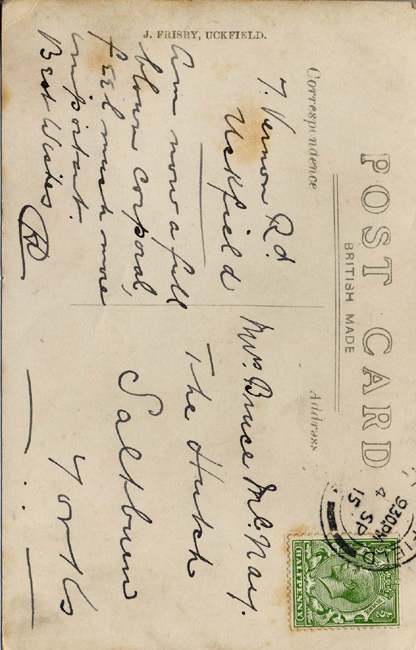 J. FRISBY, UCKFIELD.
POST CARD
BRITISH MADE
Correspondence
Address
7. Vernon Rd
Uckfield
Am now a full
blown corporal,
feel much more
important.
Best Wishes
Mrs. Bruce McNay.
The Hutch
Saltburn
Yorks
9.30 PM
4 SP
15
HALFPENNY